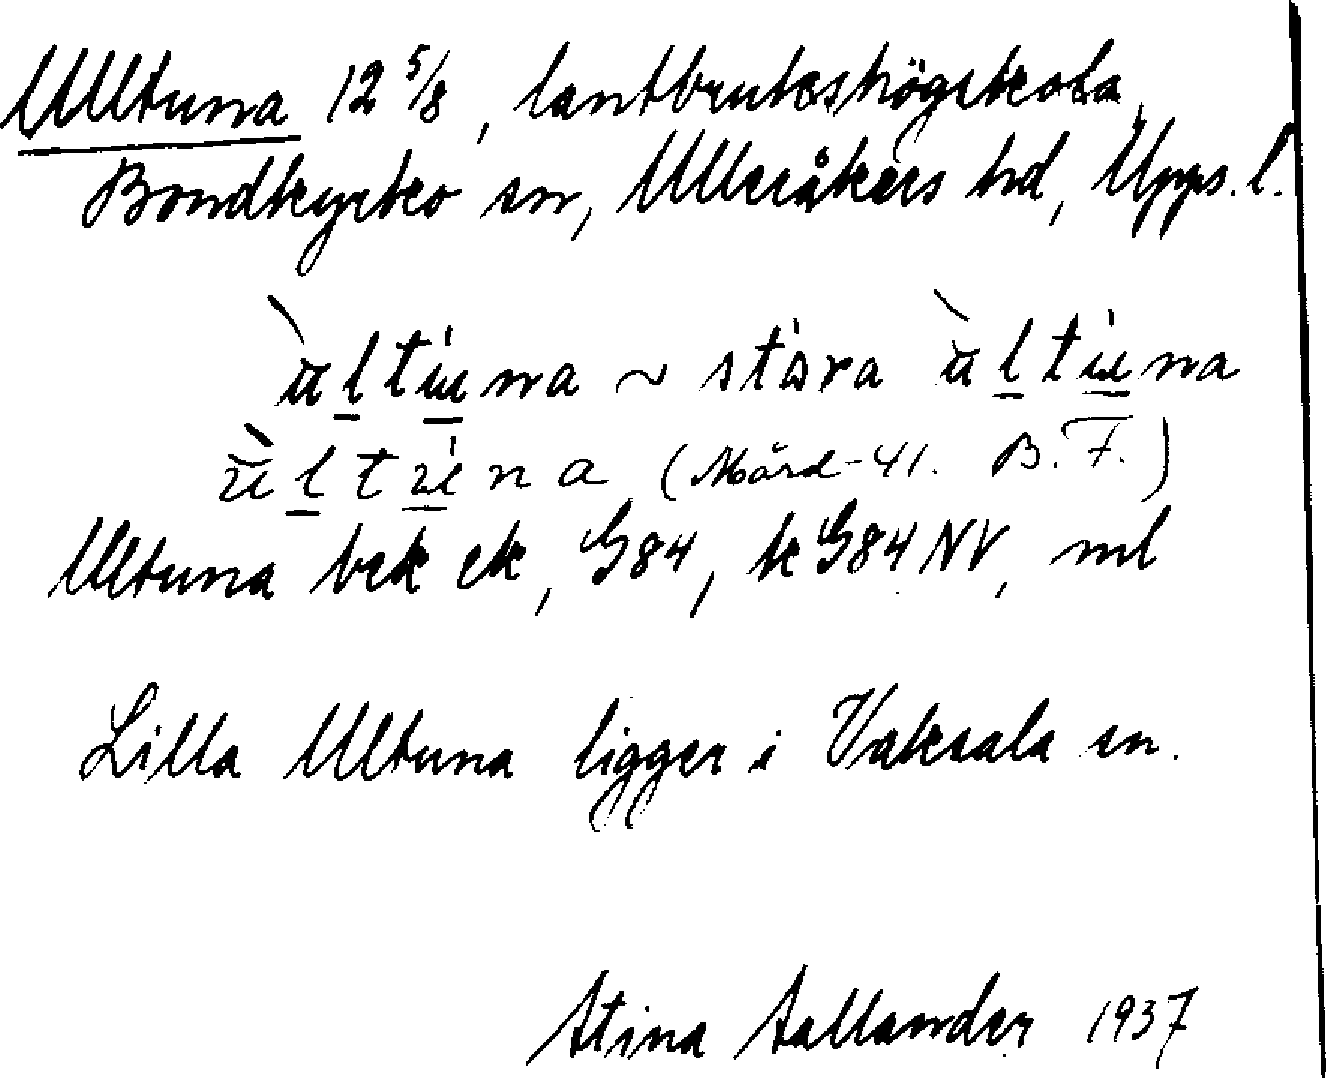 Ulltuna 12 5/8, lantbrukshögskola,
Bondkyrko sn, Ulleråkers hd, Upps. l.
ùltu̇na ~ stɷra ùltu̇na
ùltu̇na (Mård-41. B.F.)
Ultuna bek ek, G84, k G84 NV, ml
Lilla Ultuna ligger i Vaksala sn.
Stina Sallander 1937